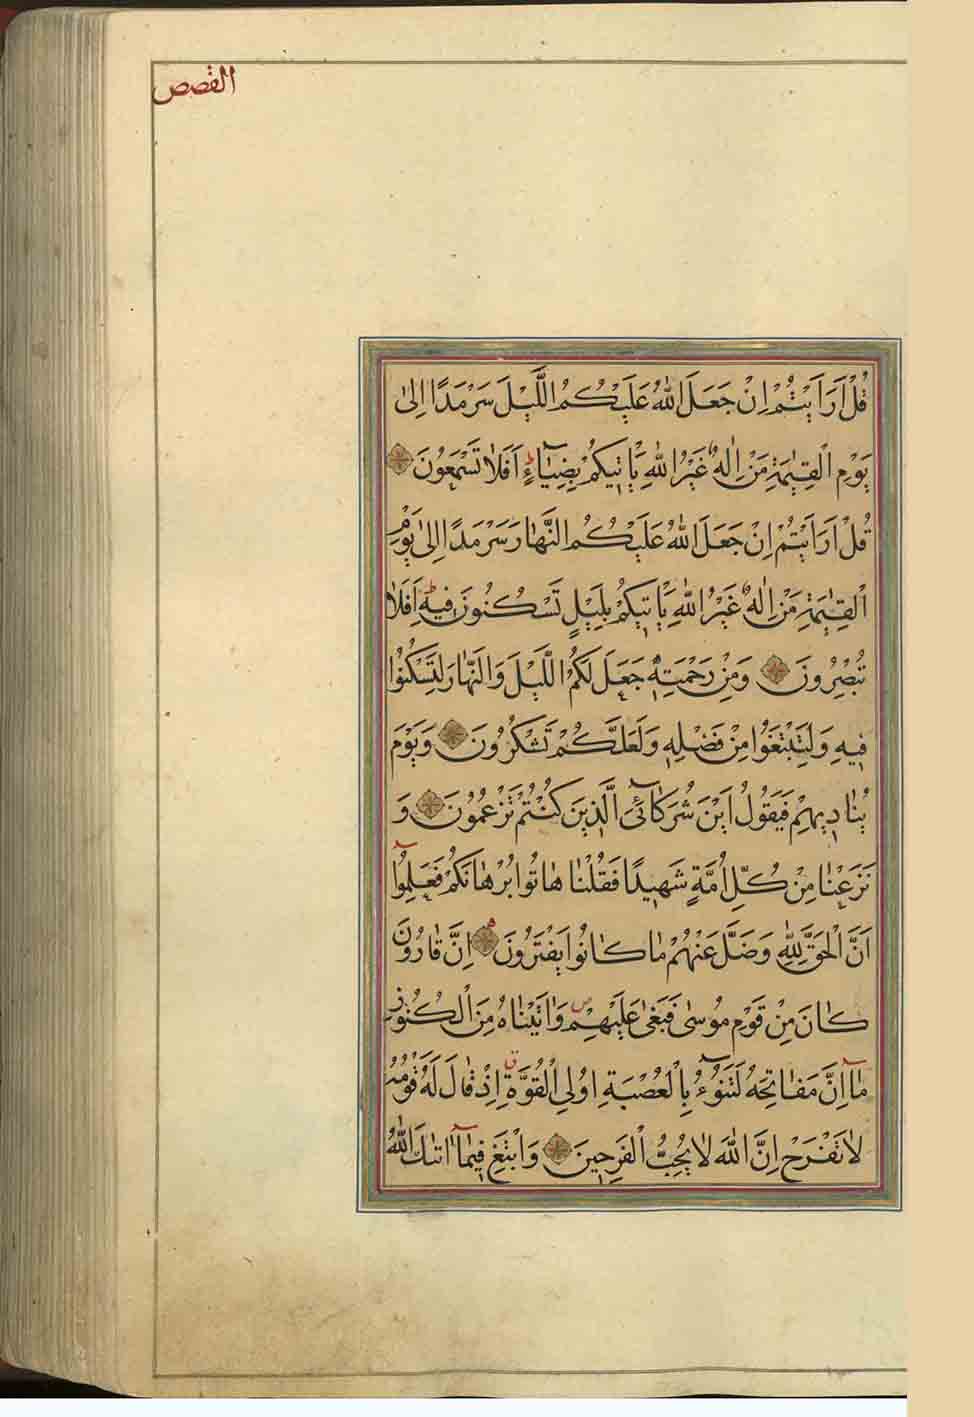 القصص
قُلْ اَرَاَيْتُمْ اِنْ جَعَلَ اللّٰهُ عَلَيْكُمُ الَّيْلَ سَرْمَدًا اِلٰى
يَوْمِ الْقِيٰمَةِ مَنْ اِلٰهٌ غَيْرُ اللّٰهِ يَاْتِيكُمْ بِضِيَاءٍ اَفَلَا تَسْمَعُونَ
قُلْ اَرَاَيْتُمْ اِنْ جَعَلَ اللّٰهُ عَلَيْكُمُ النَّهَارَ سَرْمَدًا اِلٰى يَوْمِ
الْقِيٰمَةِ مَنْ اِلٰهٌ غَيْرُ اللّٰهِ يَاْتِيكُمْ بِلَيْلٍ تَسْكُنُونَ فِيهِ اَفَلَا
تُبْصِرُونَ وَمِنْ رَحْمَتِهِ جَعَلَ لَكُمُ الَّيْلَ وَالنَّهَارَ لِتَسْكُنُوا
فِيهِ وَلِتَبْتَغُوا مِنْ فَضْلِهِ وَلَعَلَّكُمْ تَشْكُرُونَ وَيَوْمَ
يُنَادِيهِمْ فَيَقُولُ اَيْنَ شُرَكَائِىَ الَّذِينَ كُنْتُمْ تَزْعُمُونَ وَ
نَزَعْنَا مِنْ كُلِّ اُمَّةٍ شَهِيدًا فَقُلْنَا هَاتُوا بُرْهَانَكُمْ فَعَلِمُوا
اَنَّ الْحَقَّ لِلّٰهِ وَضَلَّ عَنْهُمْ مَا كَانُوا يَفْتَرُونَ اِنَّ قَارُونَ
كَانَ مِنْ قَوْمِ مُوسٰى فَبَغٰى عَلَيْهِمْ وَاٰتَيْنَاهُ مِنَ الْكُنُوزِ
مَا اِنَّ مَفَاتِحَهُ لَتَنُوءُ بِالْعُصْبَةِ اُولِي الْقُوَّةِ اِذْ قَالَ لَهُ قَوْمُهُ
لَا تَفْرَحْ اِنَّ اللّٰهَ لَا يُحِبُّ الْفَرِحِينَ وَابْتَغِ فِيمَا اٰتٰىكَ اللّٰهُ